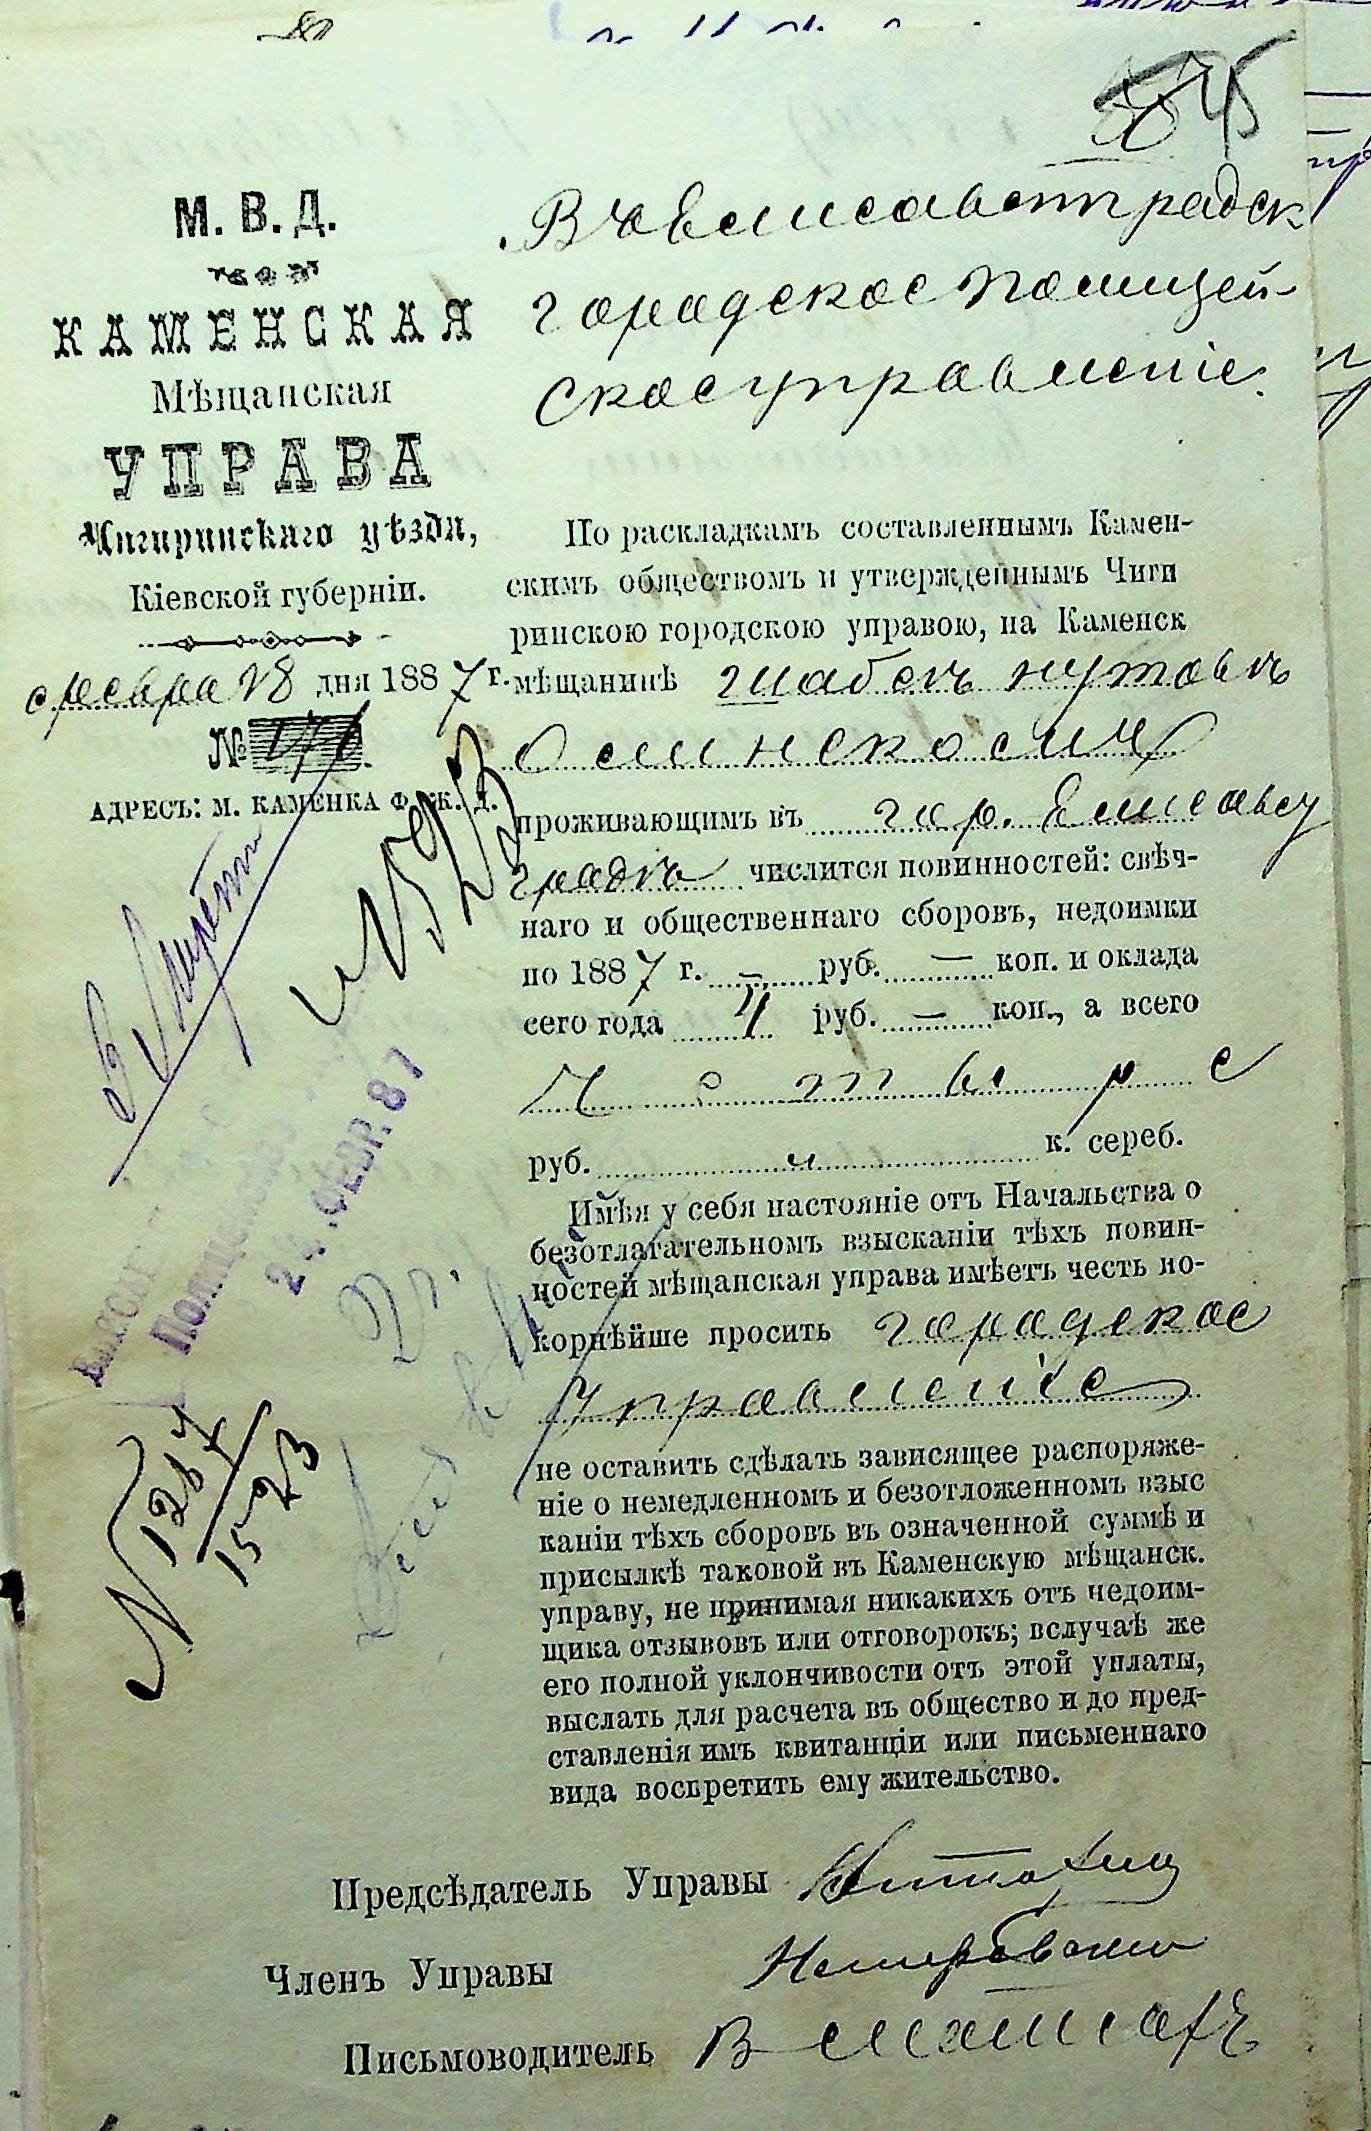 45
М. В. Д.
КАМЕНСКАЯ
Мѣщанская
УПРАВА
Чигиринскаго уѣзда,
Кіевской губерніи.
февра 18 дня 1887 г.
№
АДРЕСЪ: м. КАМЕНКА Ф. ж. д.
Въ Елисаветградск
городское полицей-
ское управленіе.
По раскладкамъ составленнымъ Камен-
скимъ обществомъ и утвержденнымъ Чиги
ринскою городскою управою, на Каменск
мѣщанинѣ
проживающимъ въ гор. Елисавет
градѣ числится повинностей: свѣч-
наго и общественнаго сборовъ, недоимки
по 1887 г. — руб. — коп. и оклада
сего года 4 руб. — коп., а всего
Четыре
руб. к. сереб.
Имѣя у себя настояніе отъ Начальства о
безотлагательномъ взысканіи тѣхъ повин-
ностей мѣщанская управа имѣетъ честь по-
корнѣйше просить городское
Управленіе
не оставить сдѣлать зависящее распоряже-
ніе о немедленномъ и безотложенномъ взыс
каніи тѣхъ сборовъ въ означенной суммѣ и
присылкѣ таковой въ Каменскую мѣщанск.
управу, не принимая никакихъ отъ недоим-
щика отзывовъ или отговорокъ; вслучаѣ же
его полной уклончивости отъ этой уплаты,
выслать для расчета въ общество и до пред-
ставленія имъ квитанціи или письменнаго
вида воспретить ему жительство.
24 ФЕВР. 87
Предсѣдатель Управы
Членъ Управы
Письмоводитель